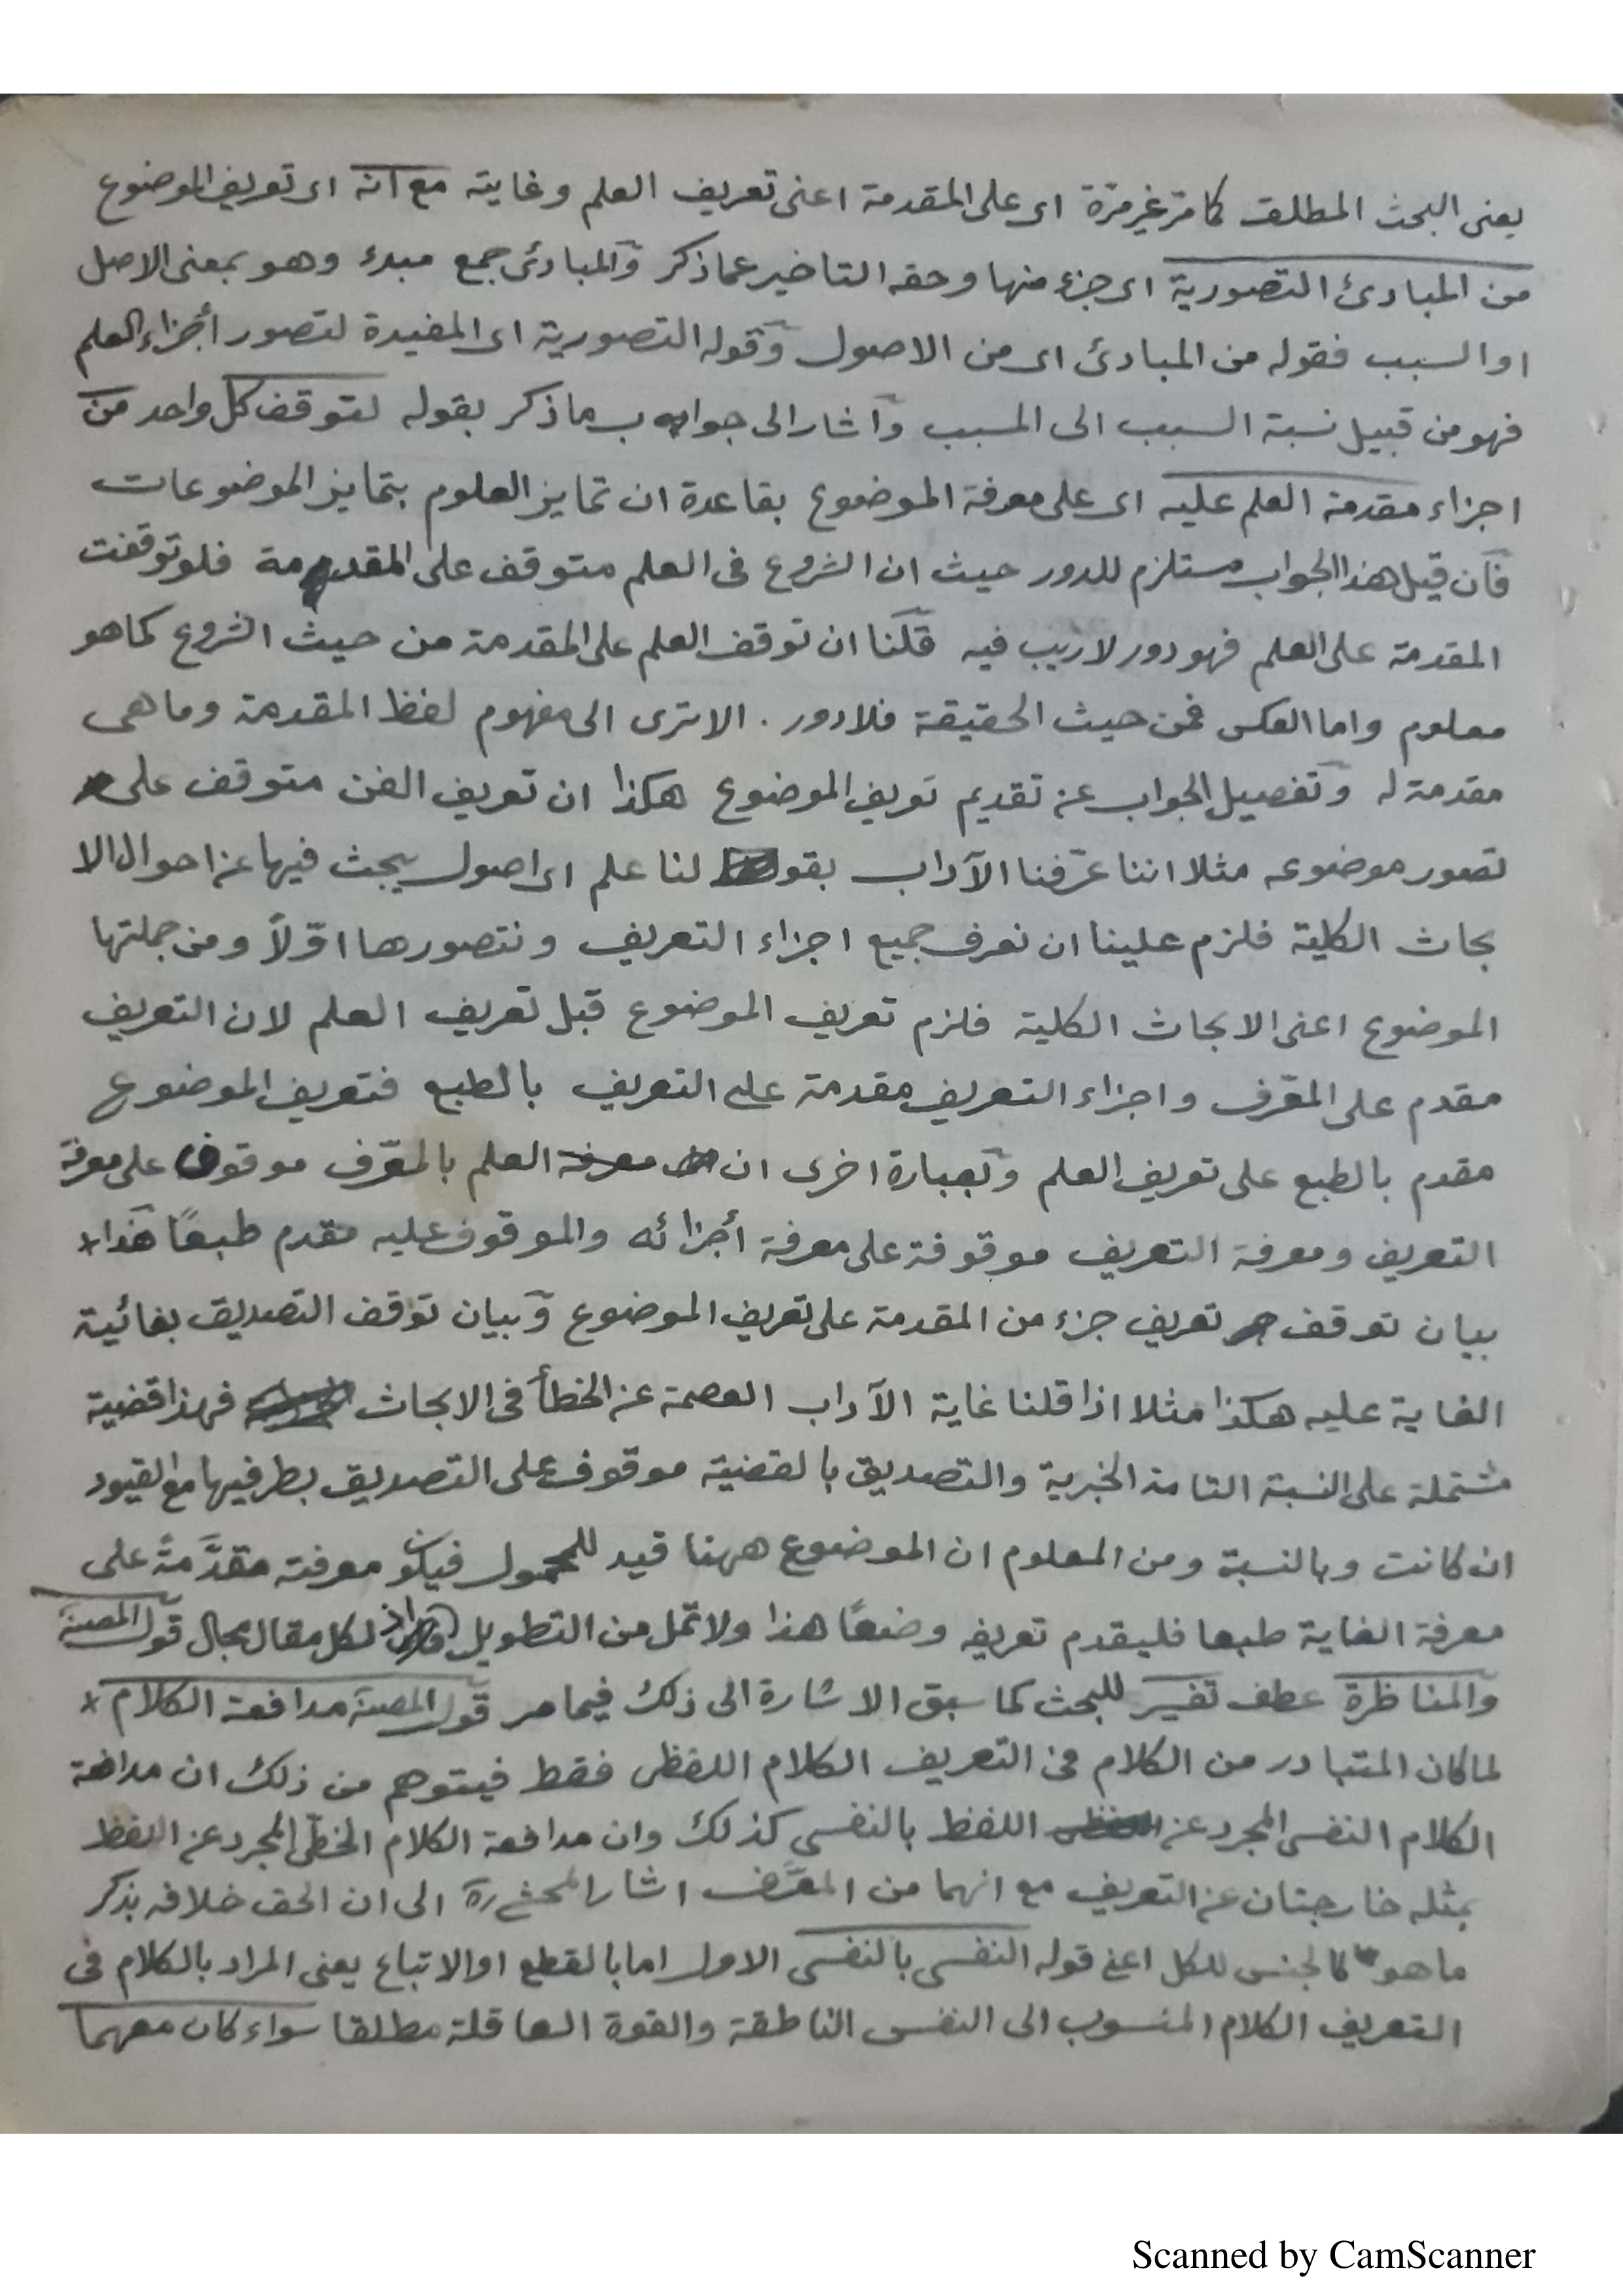 يعنى البحث المطلق كما مر غير مرة اى على المقدمة اعنى تعريف العلم وغايته مع انه اى تعريف الموضوع
من المبادئ التصورية اى جزء منها وحقه التاخير عما ذكر والمبادئ جمع مبدء وهو بمعنى الاصل
او السبب فقوله من المبادئ اى من الاصول وقوله التصورية اى المفيدة لتصور أجزاء العلم
فهو من قبيل نسبة السبب الى المسبب واشار الى جوابه بما ذكر بقوله لتوقف كل واحد من
اجزاء مقدمة العلم عليه اى على معرفة الموضوع بقاعدة ان تمايز العلوم بتمايز الموضوعات
فان قيل هذا الجواب مستلزم للدور حيث ان الشروع فى العلم متوقف على المقدمة فلو توقفت
المقدمة على العلم فهو دور لا ريب فيه قلنا ان توقف العلم على المقدمة من حيث الشروع كما هو
معلوم واما العكس فمن حيث الحقيقة فلا دور . الا ترى الى مفهوم لفظ المقدمة وما هى
مقدمة له وتفصيل الجواب عن تقديم تعريف الموضوع هكذا ان تعريف الفن متوقف على
تصور موضوعه مثلا اننا عرّفنا الآداب بقولنا علم اى اصول يبحث فيها عن احوال الا
بحاث الكلية فلزم علينا ان نعرف جميع اجزاء التعريف ونتصورها اوّلاً ومن جملتها
الموضوع اعنى الابحاث الكلية فلزم تعريف الموضوع قبل تعريف العلم لان التعريف
مقدم على المعّرف واجزاء التعريف مقدمة على التعريف بالطبع فتعريف الموضوع
مقدم بالطبع على تعريف العلم وبعبارة اخرى ان معرفة العلم بالمعّرف موقوف على معرفة
التعريف ومعرفة التعريف موقوفة على معرفة أجزائه والموقوف عليه مقدم طبعًا هذا *
بيان توقف تعريف جزء من المقدمة على تعريف الموضوع وبيان توقف التصديق بغائية
الغاية عليه هكذا مثلا اذا قلنا غاية الآداب العصمة عن الخطأ فى الابحاث فهذا قضية
مشتملة على النسبة التامة الخبرية والتصديق بالقضية موقوف على التصديق بطرفيها مع القيود
ان كانت وبالنسبة ومن المعلوم ان الموضوع ههنا قيد للمحمول فيكون معرفته مقدَّمةً على
معرفة الغاية طبعا فليقدم تعريفه وضعًا هذا ولا تمل من التطويل اذ لكل مقال مجال قول المصنف
والمناظرة عطف تفسير للبحث كما سبق الاشارة الى ذلك فيما مر قول المصنف مدافعة الكلام *
لما كان المتبادر من الكلام فى التعريف الكلام اللفظى فقط فيتوهم من ذلك ان مدافعة
الكلام النفسى المجرد عن اللفظ بالنفسى كذلك وان مدافعة الكلام الخطّى المجرد عن اللفظ
بمثله خارجتان عن التعريف مع انهما من المعَّرف اشار المحشى ره الى ان الحق خلافه بذكر
ما هو كالجنس للكل اعنى قوله النفسى بالنفسى الاول اما بالقطع او الاتباع يعنى المراد بالكلام فى
التعريف الكلام المنسوب الى النفس الناطقة والقوة العاقلة مطلقا سواء كان معهما
Scanned by CamScanner